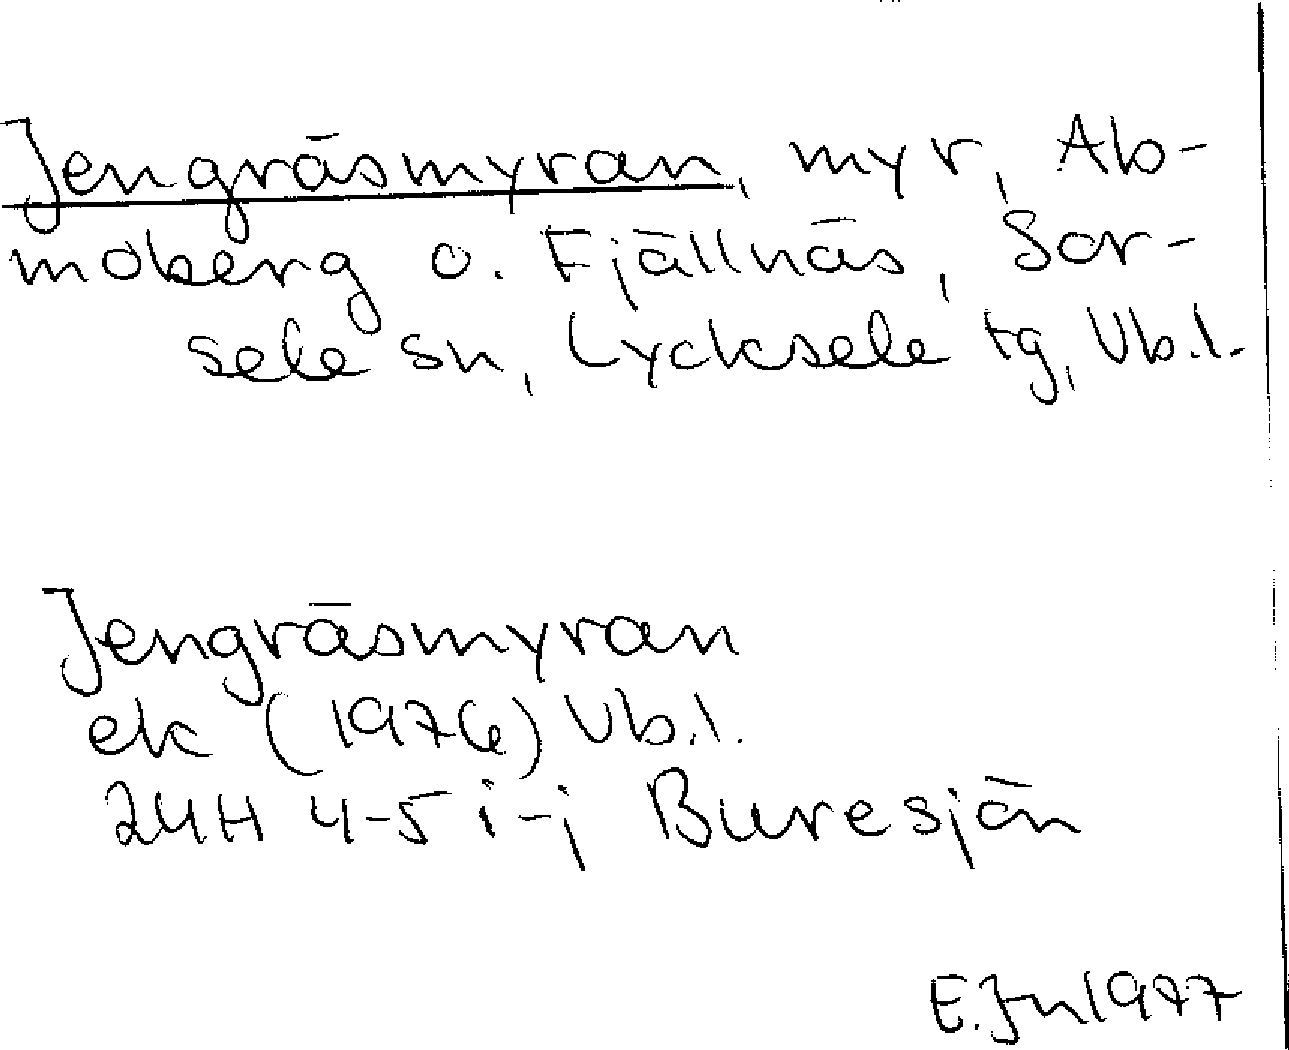 Jengräsmyran, myr, Ab-
moberg o. Fjällnäs, Sor-
sele sn, Lycksele tg, Vb.l.
Jengräsmyran
ek (1976) Vb.l.
24H 4-5 i-j Buresjön
E.Jn 1977